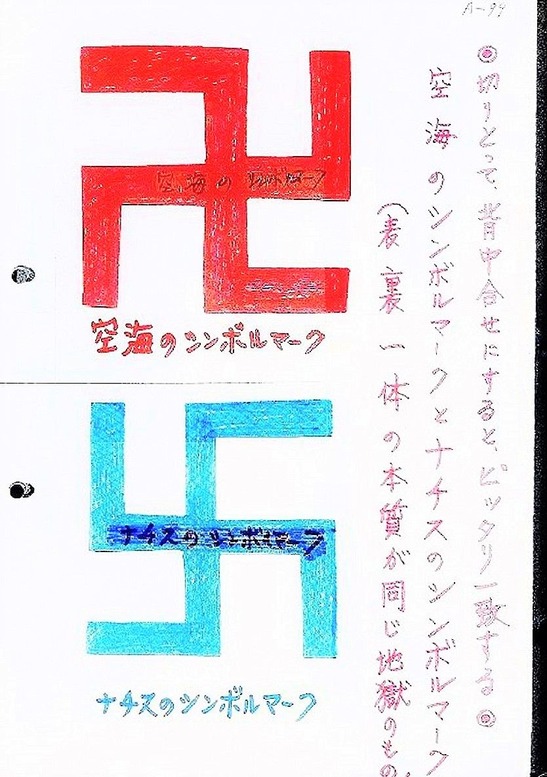 A-99
◎切りとって、背中合せにすると、ピッタリ一致する◎
空海のシンボルマークとナチスのシンボルマーク
(表裏一体の本質が同じ地獄のもの。
空海のシンボルマーク
空海のシンボルマーク
ナチスのシンボルマーク
ナチスのシンボルマーク